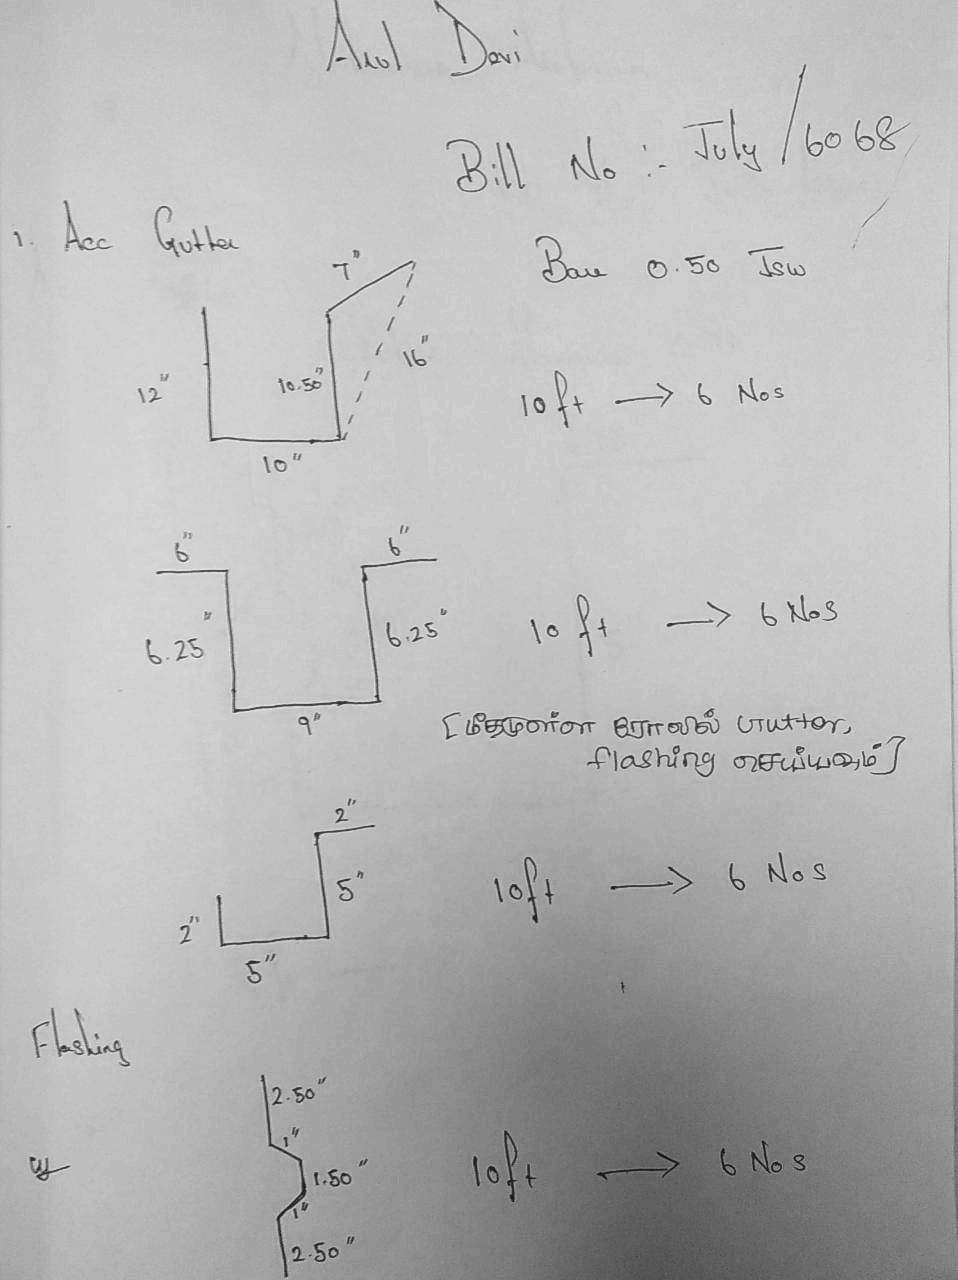 Arul Devi
Bill No :- July / 6068
1. Acc Gutter
Bare 0.50 Jsw
7"
12"
10.50"
16"
10"
10ft → 6 Nos
6"
6"
6.25"
6.25"
9"
10 ft → 6 Nos
[மீதமுள்ள ரோலில் Gutter,
flashing செய்யவும்]
2"
5"
2"
5"
10ft → 6 Nos
Flashing
2.50"
1"
1.50"
1"
2.50"
10ft → 6 Nos